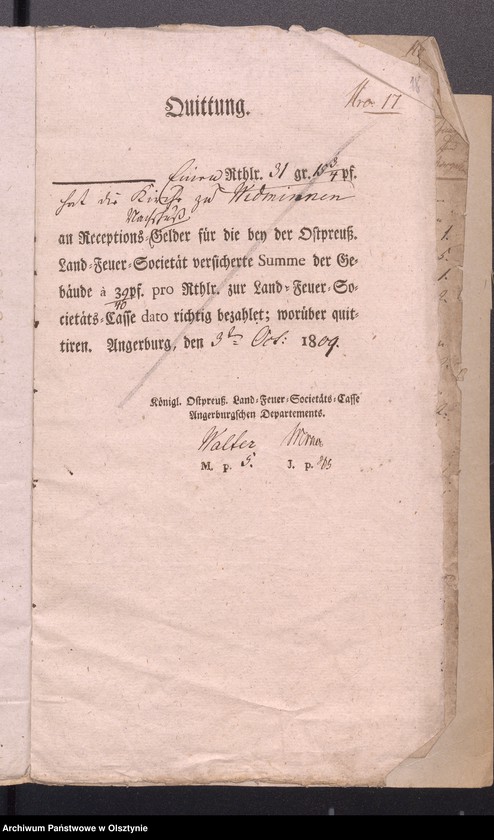 Nro 17
Quittung.
Einen Rthlr. 31 gr. 13 3/4 pf.
hat die Kirche zu Widminnen
Nachschuß
an Receptions-Gelder für die bey der Ostpreuß.
Land-Feuer-Societät versicherte Summe der Ge-
bäude à 39/40 pf. pro Rthlr. zur Land-Feuer-So-
cietäts-Casse dato richtig bezahlet; worüber quit-
tiren. Angerburg, den 3t Oct: 1809.
Königl. Ostpreuß. Land-Feuer-Societäts-Casse
Angerburgschen Departements.
Walter
M. p. 5. J. p.
Archiwum Państwowe w Olsztynie